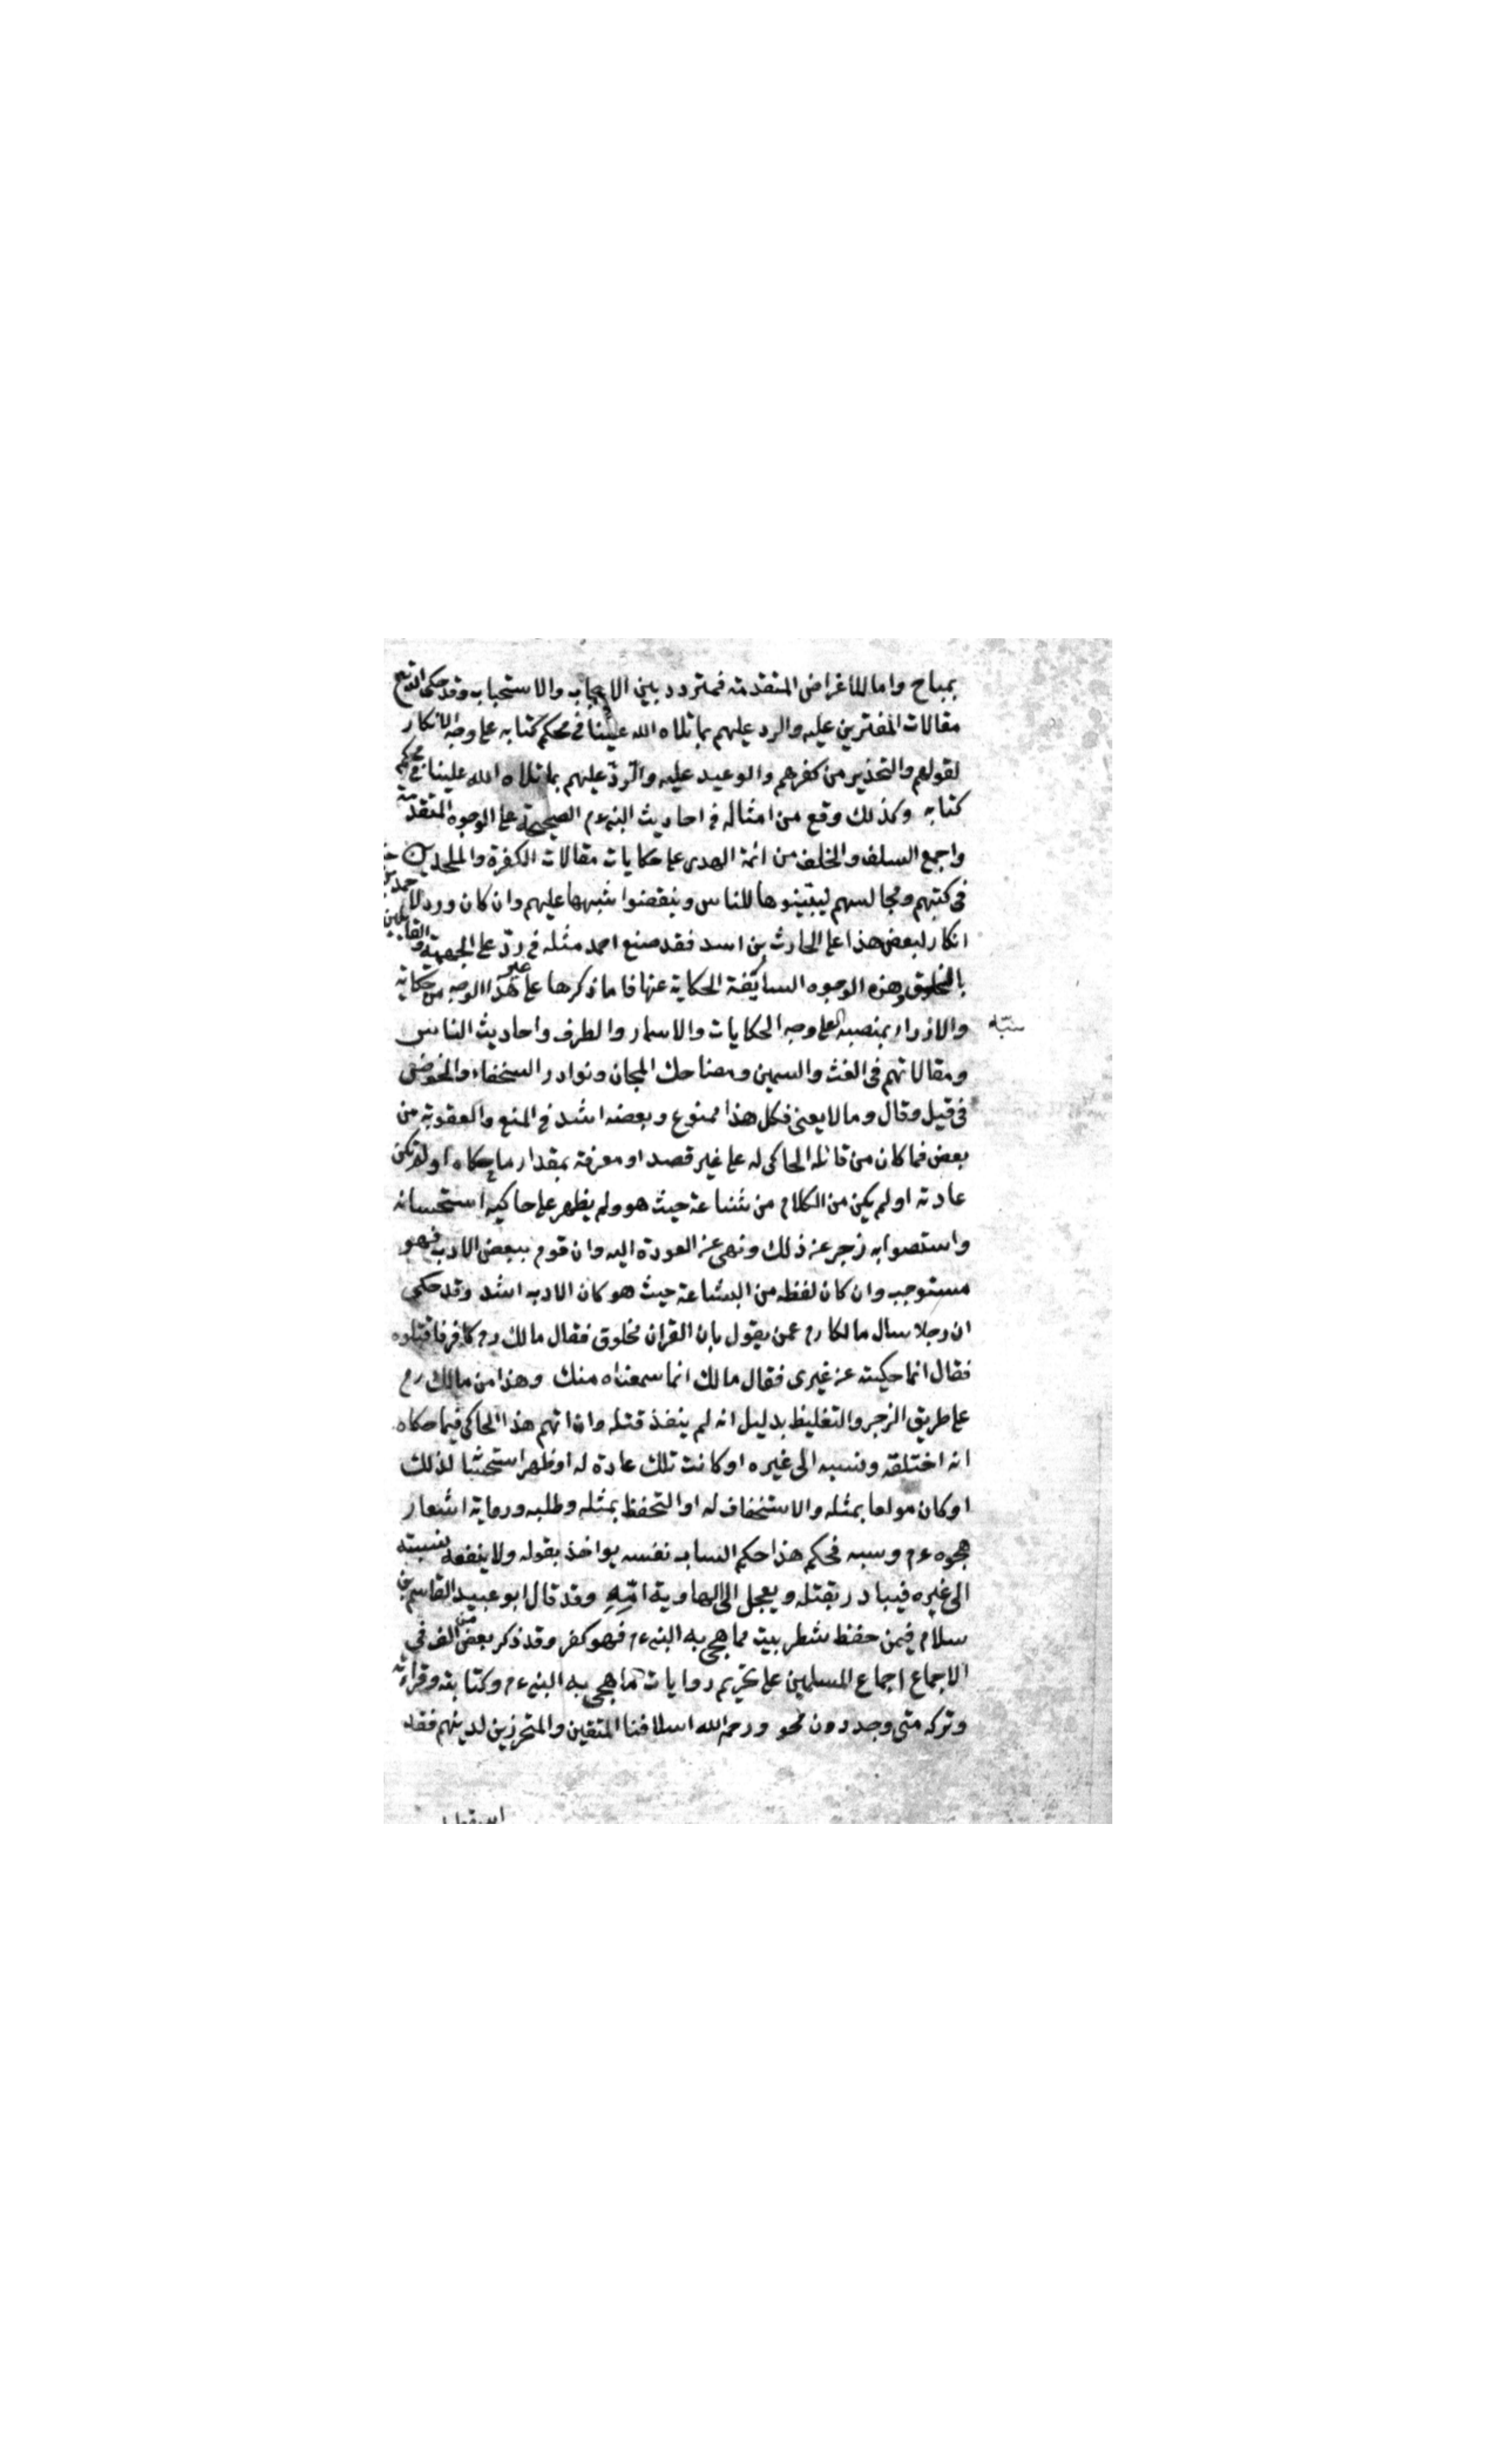 بمباح واما للاغراض المتقدمة فمتردد بين الايجاب والاستحباب وقد حكى الله تع
مقالات المفترين عليه والرد عليهم بما تلاه الله علينا في محكم كتابه على وجه الانكار
لقولهم والتحذير من كفرهم والوعيد عليه والرد عليهم بما تلاه الله علينا في محكم
كتابه وكذلك وقع من امثاله في احاديث النبي ءم الصحيحة على الوجوه المتقدمة
واجمع السلف والخلف من ائمة الهدى على حكايات مقالات الكفرة والملحدين
في كتبهم ومجالسهم ليبينوها للناس وينقضوا شبهها عليهم وان كان ورد لاحمد بن
انكار لبعض هذا على الحارث بن اسد فقد صنع احمد مثله في رد على الجهمية والقايلين
بالمخلوق هذه الوجوه السايغة الحكاية عنها فاما ذكرها على غير هذا الوجه من حكاية
والازراء بمنصبه على وجه الحكايات والاسمار والطرف واحاديث الناس
سبّه
ومقالاتهم في الغث والسمين ومضاحك المجان ونوادر السخفاء والخوض
في قيل وقال وما لا يعني فكل هذا ممنوع وبعضه اشد في المنع والعقوبة من
بعض فما كان من قائله الحاكي له على غير قصد او معرفة بمقدار ما حكاه او لم تكن
عادته او لم يكن من الكلام من شناعة حيث هو ولم يظهر على حاكيه استحسانه
واستصوابه زجر عن ذلك ونهى عن العودة اليه وان قوم ببعض الادب فهو
مستوجب وان كان لفظه من البشاعة حيث هو كان الادب اشد وقد حكى
ان رجلا سال مالكا رح عمن يقول بان القران مخلوق فقال مالك رح كافر فاقتلوه
فقال انما حكيته عن غيرى فقال مالك انما سمعناه منك وهذا من مالك رح
على طريق الزجر والتغليظ بدليل انه لم ينفذ قتله وان اتهم هذا الحاكي فيما حكاه
انه اختلقه ونسبه الى غيره او كانت تلك عادة له او ظهر استحسانا لذلك
او كان مولعا بمثله والاستخفاف له او التحفظ بمثله وطلبه ورواية اشعار
هجوه ءم وسبه فحكم هذا حكم الساب نفسه يواخذ بقوله ولا ينفعه نسبته
الى غيره فيبادر بقتله ويعجل الى الهاوية امّه وقد قال ابو عبيد القاسم بن
سلام فيمن حفظ شطر بيت مما هجى به النبي ءم فهو كفر وقد ذكر بعض من الف في
الاجماع اجماع المسلمين على تحريم روايات ما هجى به النبي ءم وكتابته وقراته
وتركه متى وجد دون محو ورحم الله اسلافنا المتقين والمتحرزين لدينهم فقد